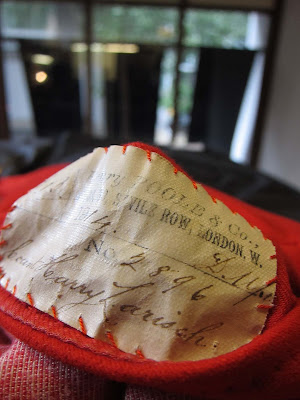 POOLE & CO.,
SAVILE ROW, LONDON, W.
14.
No. 2896
Harry Larisch